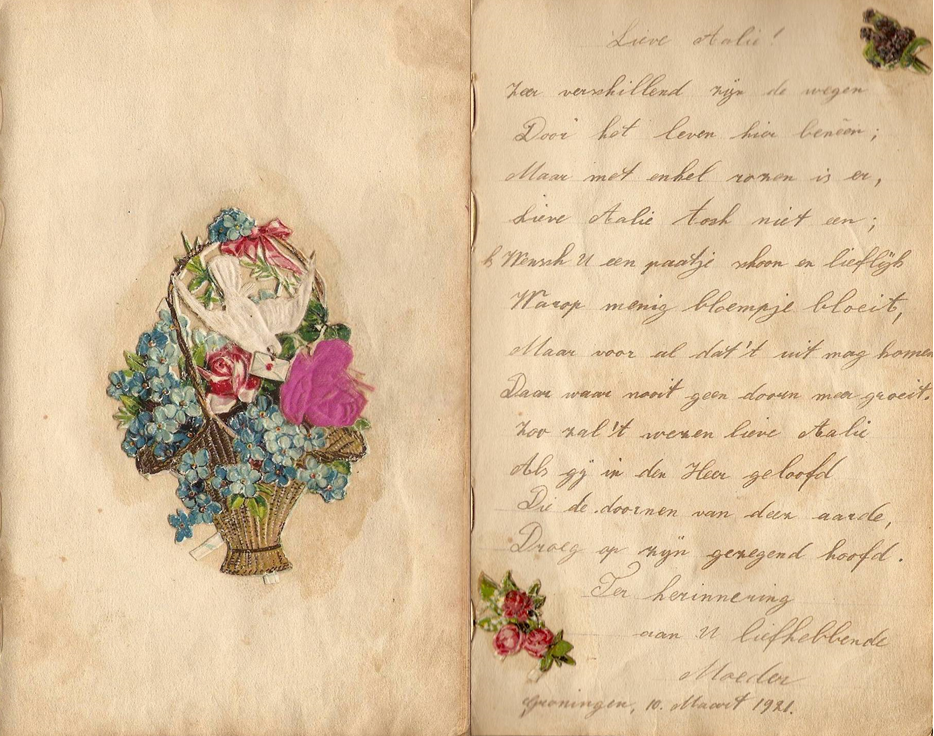 Lieve Aalie!
Zeer verschillend zijn de wegen
Door het leven hier benéén;
Maar met enkel rozen is er,
Lieve Aalie toch niet een;
k Wensch U een paatje schoon en lieflijk
Warop menig bloempje bloeit,
Maar voor al dat't uit mag komen
Daar waar nooit geen doorn meer groeit.
Zoo zal't wezen lieve Aalie
Als gij in den Heer geloofd
Die de doornen van deez aarde,
Droeg op zijn gezegend hoofd.
Ter herinnering
aan U liefhebbende
Moeder
Groningen, 10. Maart 1921.